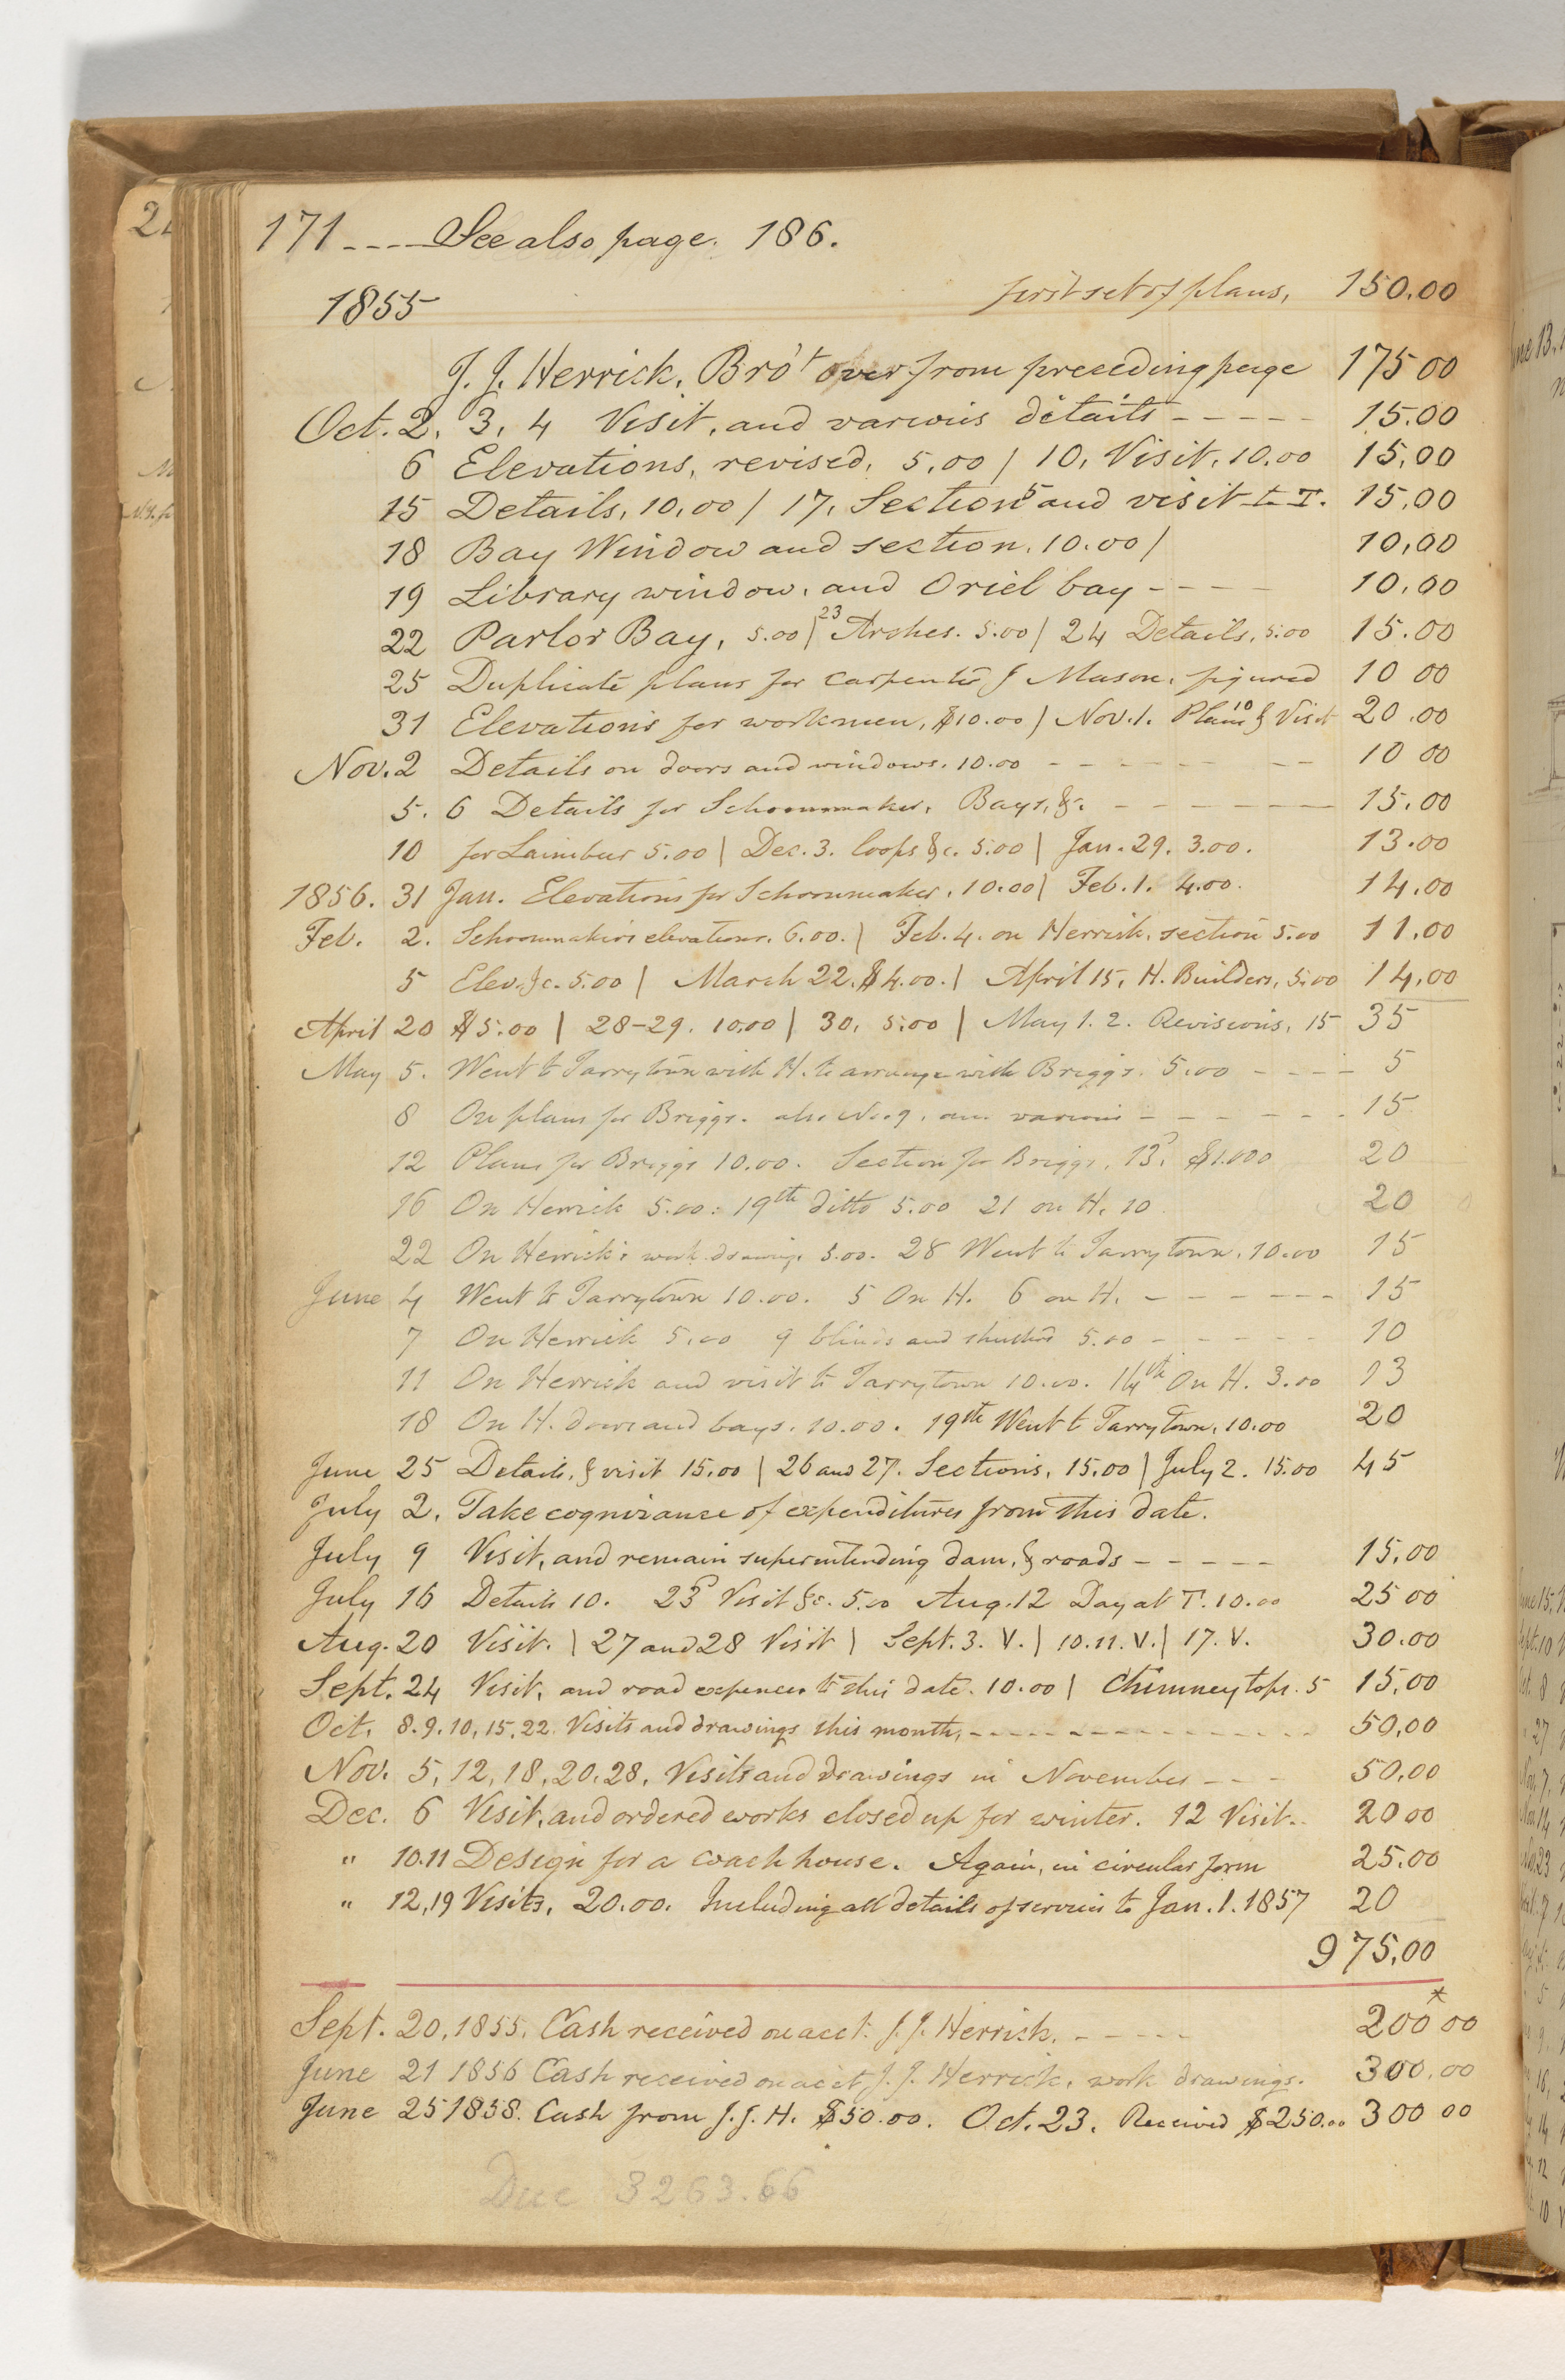 171 ---- See also page. 186.
first set of plans, 150.00
1855
J. J. Herrick. Bro't over from preceding page 175 00
Oct. 2, 3, 4 Visit, and various details ----- 15.00
6 Elevations, revised, 5.00 | 10, Visit, 10.00 15.00
15 Details, 10.00 / 17, Sections 5 and visit to T. 15.00
18 Bay Window and section. 10.00 / 10,00
19 Library window, and Oriel bay ---- 10.00
22 Parlor Bay, 5.00 | 23 Arches. 5.00 | 24 Details, 5.00 15.00
25 Duplicate plans for carpenter & Mason, figured 10 00
31 Elevations for workmen, $10.00 | Nov. 1. Plans 10 & Visit 20.00
Nov. 2 Details on doors and windows. 10.00 ------- 10 00
5. 6 Details for Schoonmaker, Bays, &c. ------- 15.00
10 for 5.00 | Dec. 3. loops &c. 5.00 | Jan. 29. 3.00. 13.00
1856. 31 Jan. Elevations for Schoonmaker. 10.00 | Feb. 1. 4.00. 14.00
Feb. 2. Schoonmakers elevations. 6.00. | Feb. 4. on Herrick, section 5.00 11.00
5 Elev. &c. 5.00 | March 22. $4.00. | April 15, H. Builders, 5.00 14,00
April 20 $5.00 | 28-29. 10.00 | 30, 5.00 | May 1. 2. Revisions, 15 35
May 5. Went to Tarrytown with H. to arrange with Briggs. 5.00 ---- 5
8 On plans for Briggs. also No. 9, various ------ 15
12 Plans for Briggs 10.00. Section for Briggs, 13, $1000 20
16 On Herrick 5.00. 19th ditto 5.00 21 on H. 10 20
22 On Herrick's work drawings 5.00. 28 Went to Tarrytown, 10.00 15
June 4 Went to Tarrytown 10.00. 5 On H. 6 on H. ------ 15
7 On Herrick 5.00 9 blinds and shutters 5.00 ----- 10
11 On Herrick and visit to Tarrytown 10.00. 14th On H. 3.00 13
18 On H. doors and bays. 10.00. 19th Went to Tarrytown, 10.00 20
June 25 Details, & visit 15.00 | 26 and 27. Sections, 15.00 | July 2. 15.00 45
July 2. Take cognizance of expenditures from this date.
July 9 Visit, and remain superintending dam, & roads ----- 15.00
July 16 Details 10. 23d Visit &c. 5.00 Aug. 12 Day at T. 10.00 25 00
Aug. 20 Visit. | 27 and 28 Visit | Sept. 3. V. | 10. 11. V. | 17. V. 30.00
Sept. 24 Visit, and road expences to this date. 10.00 | Chimney tops. 5 15,00
Oct. 8. 9. 10, 15, 22. Visits and drawings this month, ------------- 50,00
Nov. 5, 12, 18, 20, 28, Visits and drawings in November --- 50.00
Dec. 6 Visit, and ordered works closed up for winter. 12 Visit.. 20 00
" 10.11 Design for a coach house. Again, in circular form 25.00
" 12,19 Visits, 20.00. Including all details of services to Jan. 1. 1857 20
975,00
Sept. 20, 1855. Cash received on acct. J. J. Herrick. ----- 200*00
June 21 1856 Cash received on acct J. J. Herrick, work drawings. 300.00
June 25 1858. Cash from J. J. H. $50.00. Oct. 23. Received $250.00 300 00
Due 3263.66